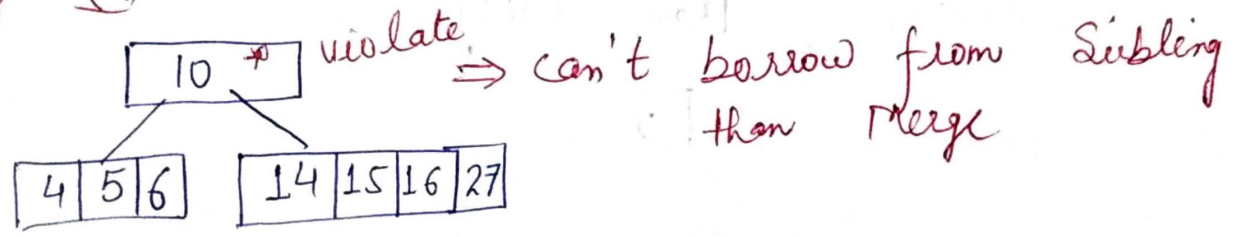 10 * violate ⇒ can't borrow from Sibling
than Merge
4 5 6 14 15 16 27